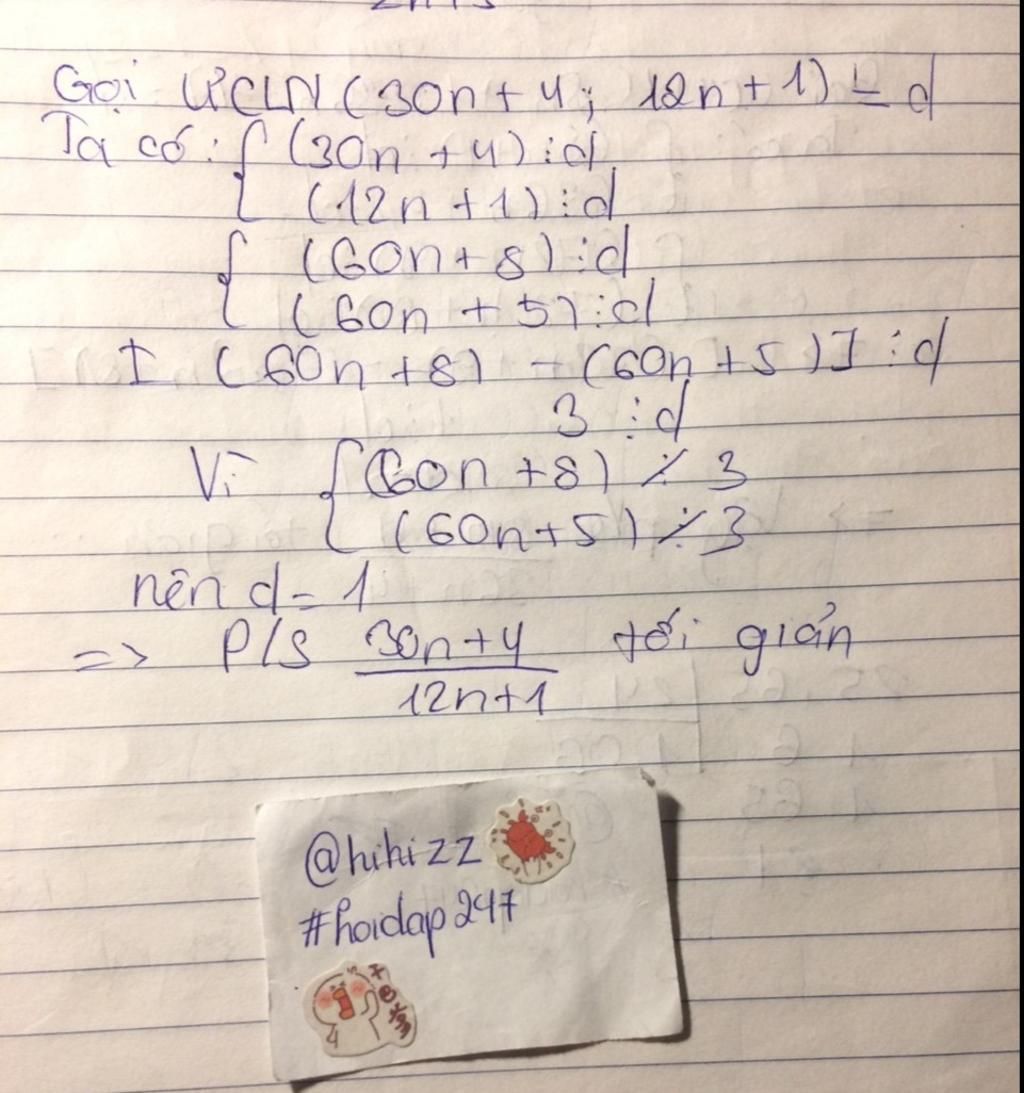 Gọi ƯCLN (30n + 4; 12n + 1) = d
Ta có: { (30n + 4) ⋮ d
(12n + 1) ⋮ d
{ (60n + 8) ⋮ d
(60n + 5) ⋮ d
[ (60n + 8) - (60n + 5) ] ⋮ d
3 ⋮ d
Vì { (60n + 8) ⋮̸ 3
(60n + 5) ⋮̸ 3
nên d = 1
=> P/S 30n + 4 tối giản
12n + 1
@hihizz
#hoidap247